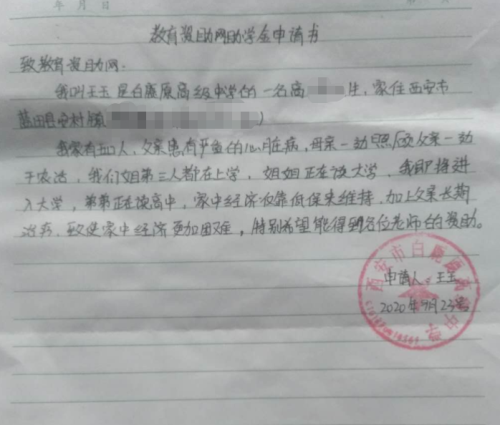 年 月 日
教育资助网助学金申请书
致教育资助网:
我叫王玉是白鹿原高级中学的一名高 生,家住西安市
蓝田县安村镇 )
我家有五口人,父亲患有严重的心脏病,母亲一边照顾父亲一边
干农活,我们姐弟三人都在上学,姐姐正在读大学,我即将进
入大学,弟弟正在读高中,家中经济收靠低保来维持,加上父亲长期
治疗,致使家中经济更加困难,特别希望能得到各位老师的资助。
申请人:王玉
2020年9月23号
西安市白鹿原高级中学